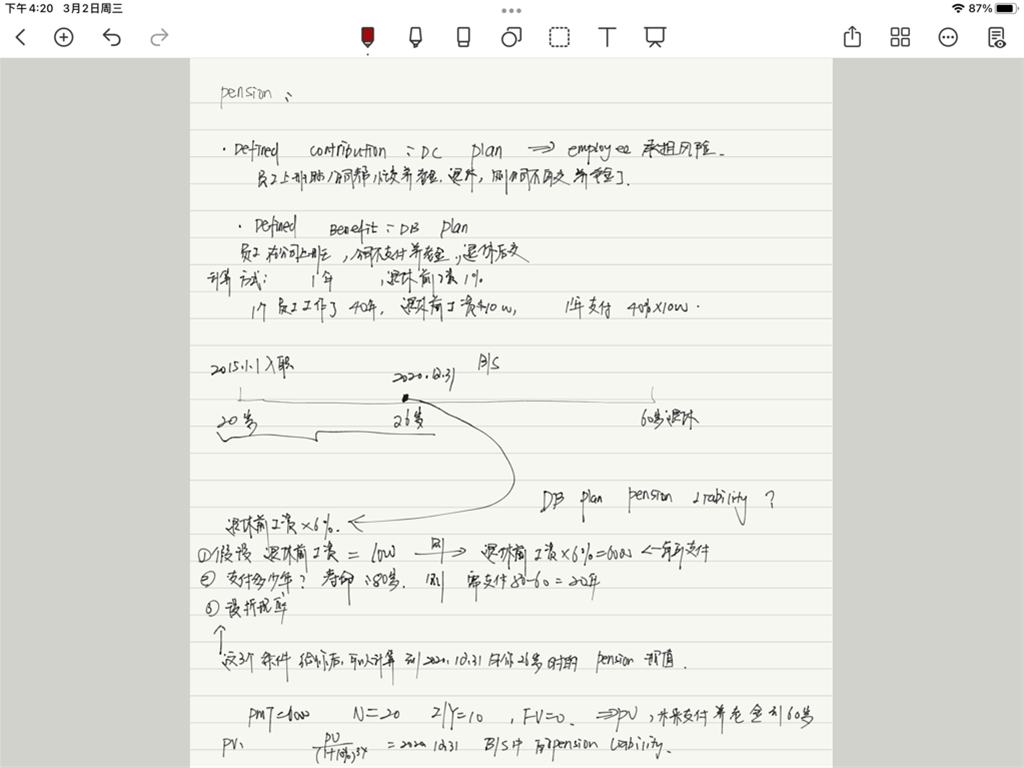 下午4:20 3月2日周三
87%
pension:
· Defined contribution : DC plan ⇒ employee 承担风险.
员工上班时公司帮你交养老金,退休,则公司不再交养老金了.
· Defined Benefit : DB plan
员工在公司上班,公司不支付养老金,退休后交
计算方式: 1年 ,退休前工资1%
1个员工工作了40年, 退休前工资为10w, 1年支付 40%×10w.
2015.1.1入职 2020.12.31 B/S
20岁 26岁 60岁退休
DB plan pension liability ?
退休前工资×6%.
① 假设 退休前工资 = 10w 则→ 退休前工资×6%=6000 ← 每年支付
② 支付多少年? 寿命:80岁. 则 需支付80-60=20年
③ 设折现率
↑
这3个条件给你后,可以计算到2020.12.31日你26岁时的 pension 现值.
PMT=6000 N=20 I/Y=10 ,FV=0. ⇒PV,未来支付养老金到60岁
PV. PV/(1+10%)^34 = 2020.12.31 B/S中的pension liability.